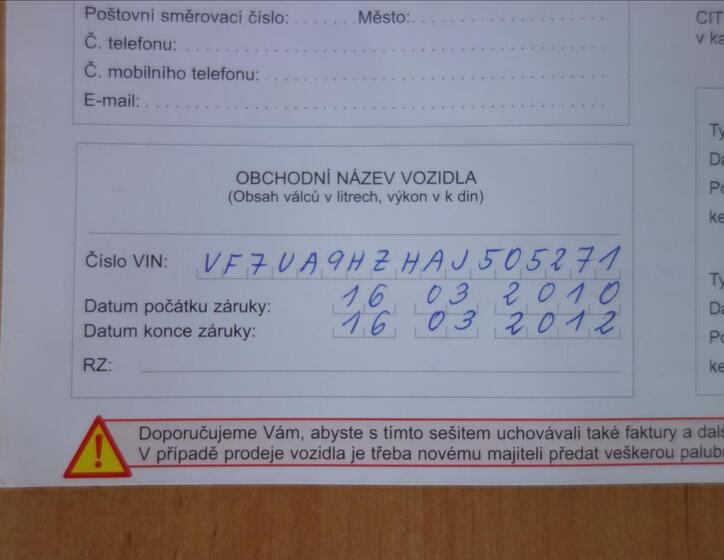 Poštovní směrovací číslo: ....... Město: ..............................
Č. telefonu: ..............................
Č. mobilního telefonu: ..............................
E-mail: ..............................
OBCHODNÍ NÁZEV VOZIDLA
(Obsah válců v litrech, výkon v k din)
Číslo VIN: VF7UA9HZHAJ505271
Datum počátku záruky: 16 03 2010
Datum konce záruky: 16 03 2012
RZ:
Doporučujeme Vám, abyste s tímto sešitem uchovávali také faktury a
V případě prodeje vozidla je třeba novému majiteli předat veškerou
CIT
v ka
Ty
Da
Po
ke
Ty
Da
Po
ke